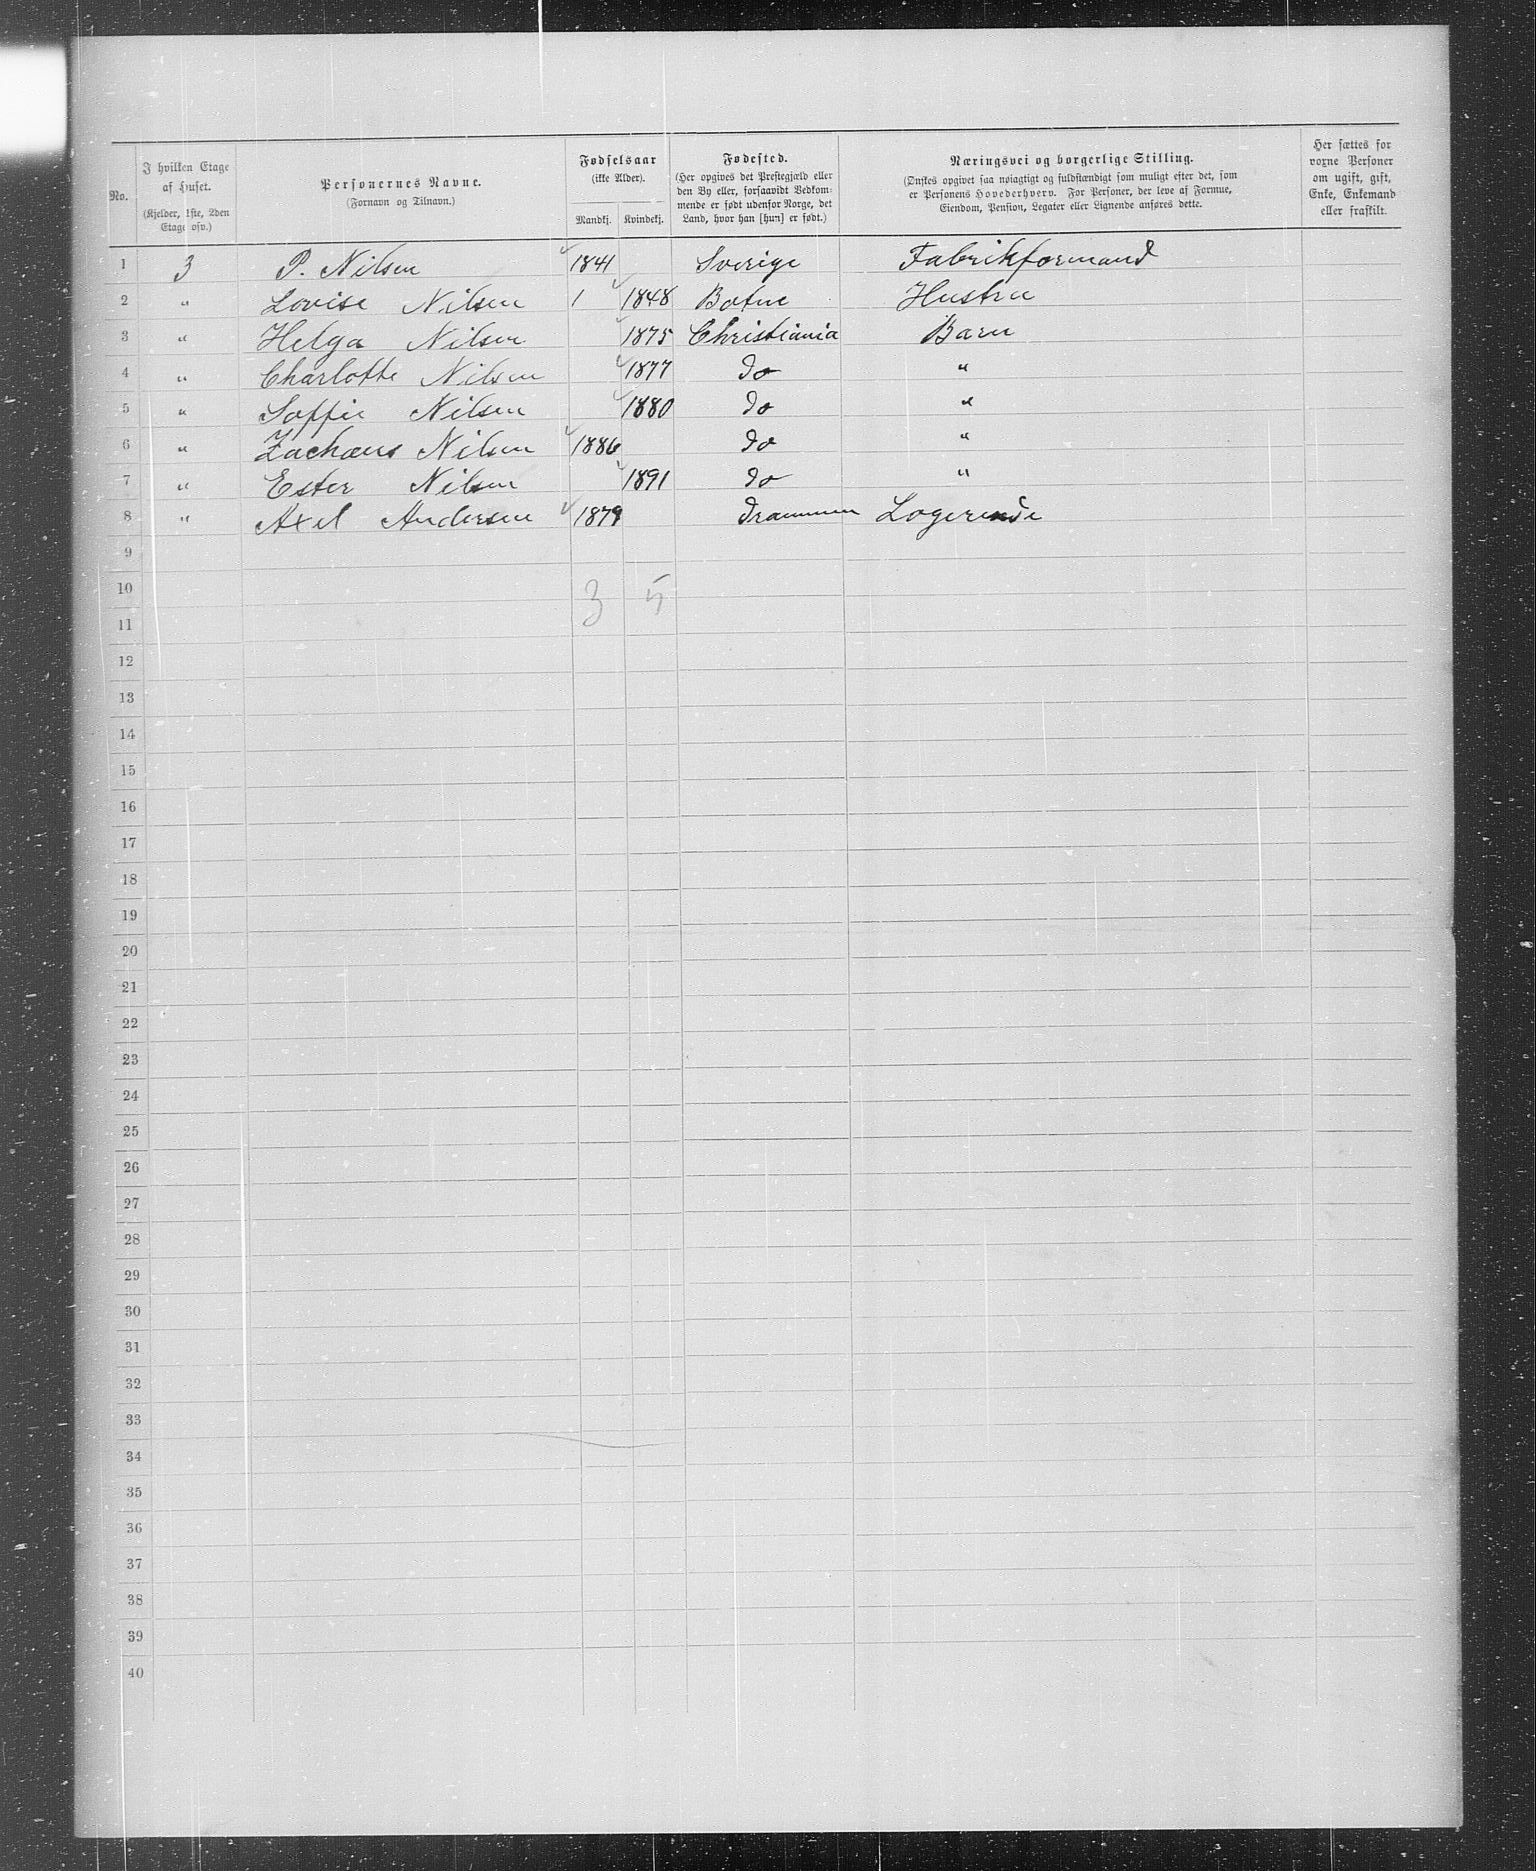 No. | I hvilken Etage af Huset. (Kjelder, 1ste, 2den Etage osv.) | Personernes Navne. (Fornavn og Tilnavn.) | Fødselsaar (ikke Alder). Mandkj. | Kvindekj. | Fødested. (Her opgives det Prestegjæld eller den By eller, forsaavidt Vedkommende er født udenfor Norge, det Land, hvor han [hun] er født.) | Næringsvei og borgerlige Stilling. (Ønskes opgivet saa nøiagtigt og fuldstændigt som muligt efter det, som er Personens Hovederhverv. For Personer, der leve af Formue, Eiendom, Pension, Legater eller Lignende anføres dette. | Her sættes for voxne Personer om ugift, gift, Enke, Enkemand eller fraskilt.
1 3 P. Nilsen 1841 Sverige Fabrikformand
2 " Lovise Nilsen 1 1848 Botne Hustru
3 " Helga Nilsen 1875 Christiania Barn
4 " Charlotte Nilsen 1877 do "
5 " Soffie Nilsen 1880 do "
6 " Zachæus Nilsen 1886 do "
7 " Ester Nilsen 1891 do "
8 " Axel Andersen 1879 Drammen Logerende
9
10 3 5
11
12
13
14
15
16
17
18
19
20
21
22
23
24
25
26
27
28
29
30
31
32
33
34
35
36
37
38
39
40